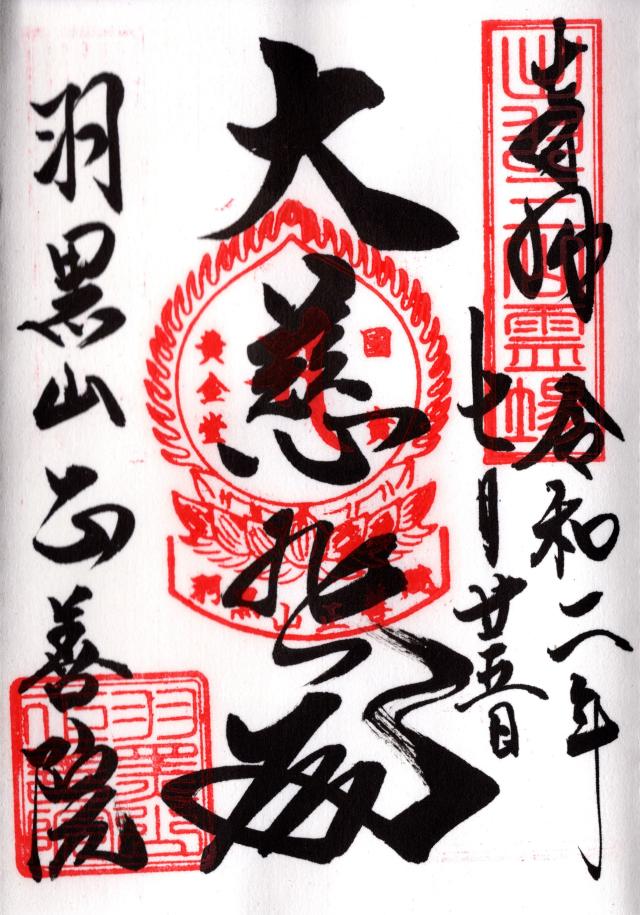 奉拝
令和二年
七月廿五日
大慈悲殿
羽黒山正善院
出羽六根霊場
國
黄金堂